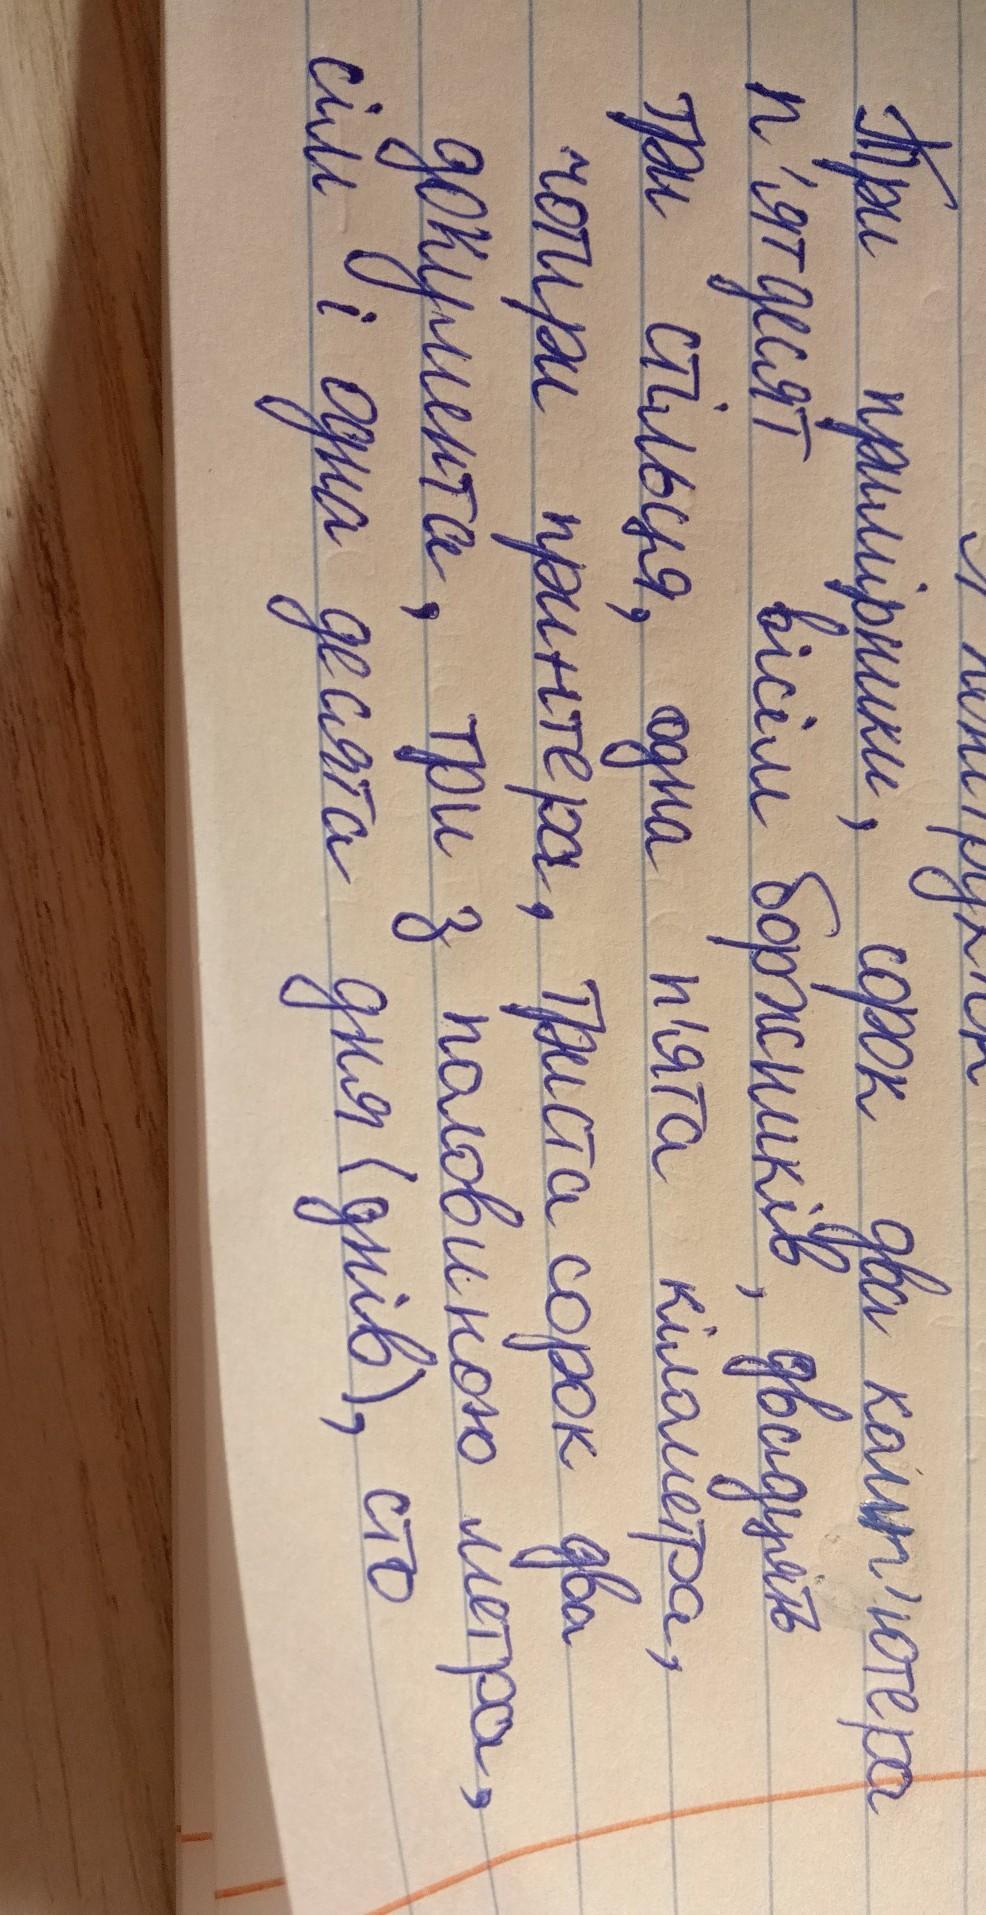 Три примірники, сорок два комп'ютера
п'ятдесят вісім боржників, двадцять
три стільця, одна п'ята кілометра,
чотири принтера, триста сорок два
документа, три з половиною метра,
сім і одна десята дня (днів), сто